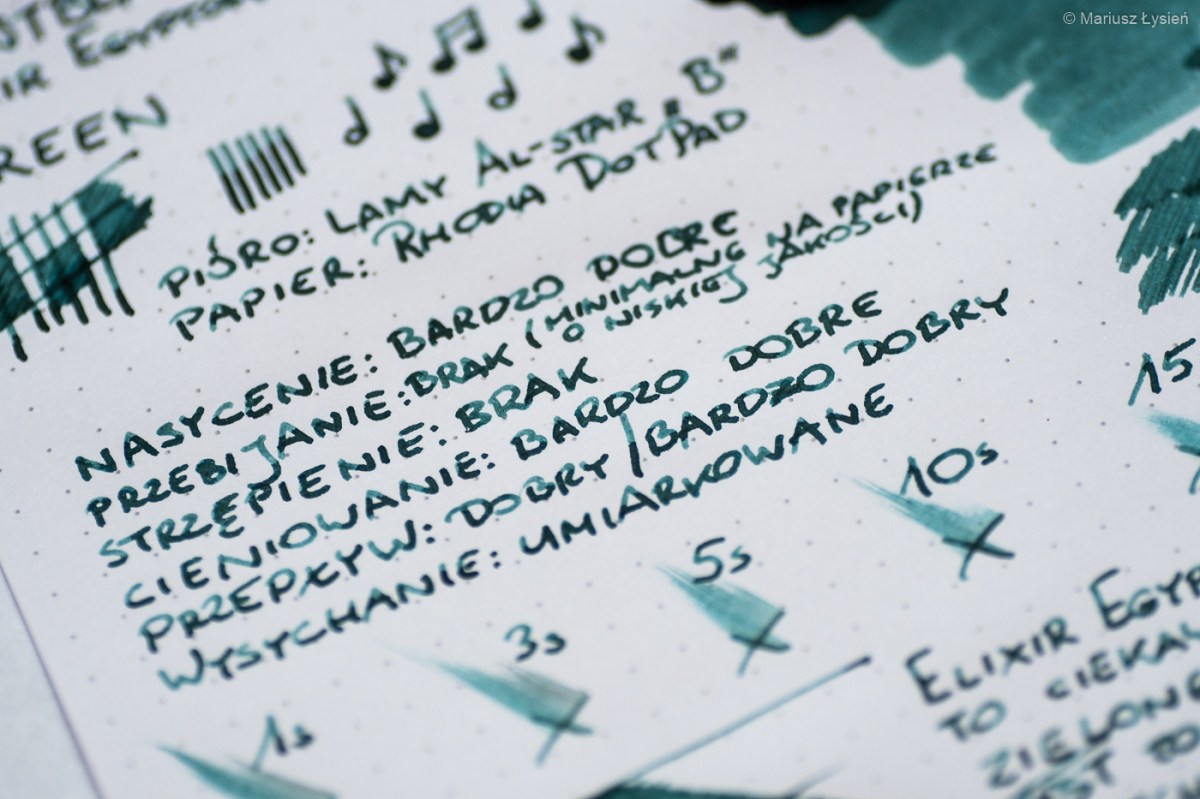 © Mariusz Łysień
PIÓRO: LAMY AL-STAR „B"
PAPIER: RHODIA DOTPAD
NASYCENIE: BARDZO DOBRE
PRZEBIJANIE: BRAK (MINIMALNE NA PAPIERZE
O NISKIEJ JAKOŚCI)
STRZĘPIENIE: BRAK
CIENIOWANIE: BARDZO DOBRE
PRZEPŁYW: DOBRY / BARDZO DOBRY
WYSYCHANIE: UMIARKOWANE
1s
3s
5s
10s
15
ELIXIR
TO